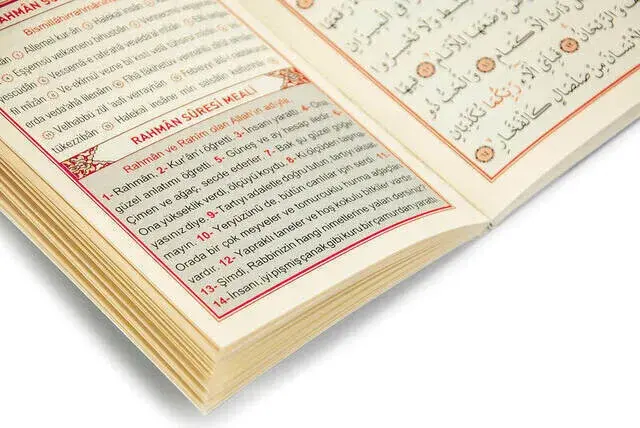 RAHMÂN SÛ
Bismillâhirrahmânirra
Allemel kur'ân Halekal
Eşşemsü velkameru bihusbân
yescüdân Vessemâe rafe'ahâ ve veda'al
fil mîzân Ve ekîmul vezne bil kısti velâ tuhsirul mîzân
erda veda'ahâ lilenâm Fîhâ fâkihetün
Velhabbü zül 'asfi verrayhân Febieyyi âlâi
tükezzibân Halekal insâne min salsâlin kelfehhâr
RAHMÂN SÛRESİ MEÂLİ
Rahmân ve Rahîm olan Allah'ın adıyla,
1- Rahmân, 2- Kur'ân'ı öğretti. 3- İnsanı yarattı. 4- Ona
güzel anlatımı öğretti. 5- Güneş ve ay hesap iledir. 6-
Çimen ve ağaç, secde ederler. 7- Bak şu güzel göğe!
Ona yükseklik verdi, ölçüyü koydu. 8- Ki ölçüden taşma-
yasınız diye. 9- Tartıyı adaletle doğru tutun, tartıyı aksat-
mayın. 10- Yeryüzünü de , bütün canlılar için serdi. 11-
Orada bir çok meyveler ve tomurcuklu hurma ağaçları
vardır. 12- Yapraklı taneler ve hoş kokulu bitkiler vardır.
13- Şimdi, Rabbinizin hangi nimetlerine yalan dersiniz?
14- İnsanı, iyi pişmiş çanak gibi kuru bir çamurdan yarattı.
فِي الْمِيزَانِ
وَضَعَهَا لِلْأَنَامِ فِيهَا
ذَاتُ الْأَكْمَامِ وَالْحَبُّ ذُو
وَالرَّيْحَانُ فَبِأَيِّ آلَاءِ رَبِّكُمَا تُكَذِّبَانِ
مِنْ صَلْصَالٍ كَالْفَخَّارِ